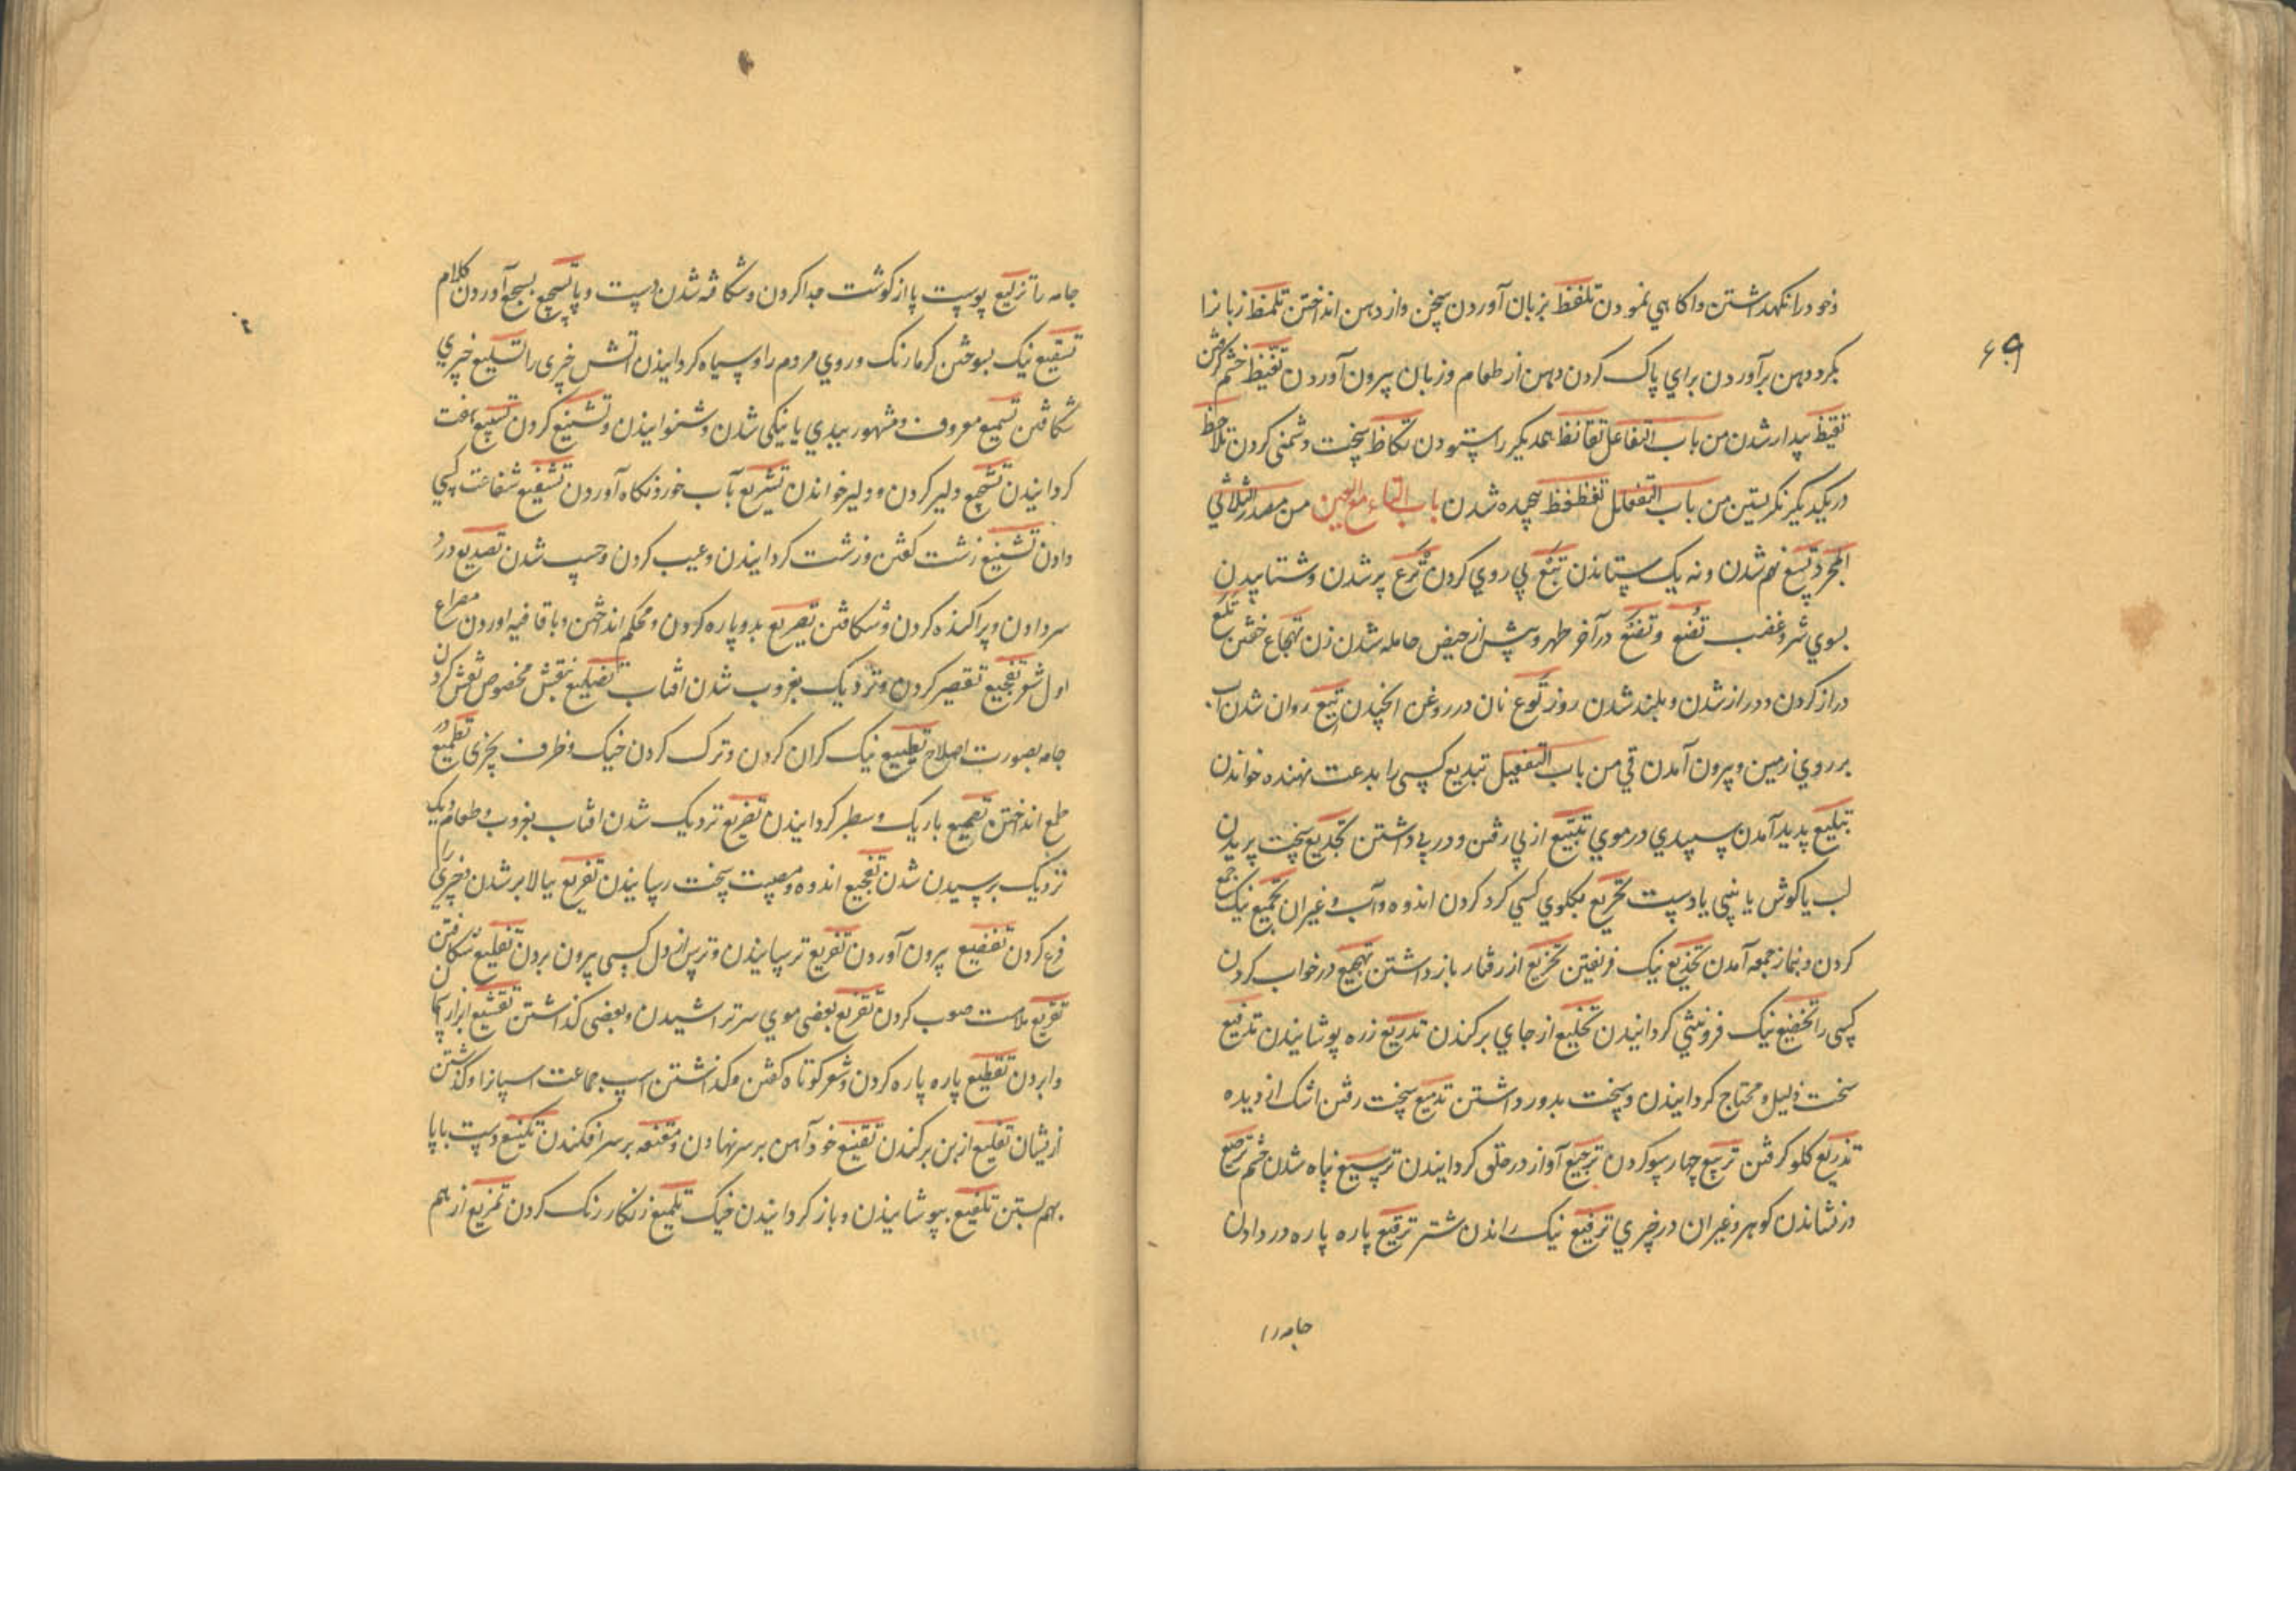 وخود را نکهداشتن واکاهي نمودن تلفظ بزبان آوردن سخن واز دهن انداختن تلمظ زبانرا
بکرد دهن برآوردن براي پاک کردن دهن از طعام وزبان بیرون آوردن تغیظ خشم کرفتن
تیقظ بیدار شدن من باب التفاعل تقانظ همدیکر را ستودن تکاظ سخت دشمنی کردن تلاحظ
دریکدیکر نکرستین من باب التفعلل تغظغظ پیچیده شدن باب التاء مع العین من مصدر الثلاثي
المجرد تسع نهم شدن ونه یک ستاندن تبع پي روي کردن ترع پر شدن وشتابیدن
بسوي شر وغضب تضع وتضع در آخر طهر وپیش از حیض حامله شدن زن تهجاع خفتن تلع
دراز کردن ودراز شدن وبلند شدن روز توع نان در روغن انجیدن تیع روان شدن آب
بر روي زمین وبیرون آمدن قي من باب التفعیل تبدیع کسی را بدعت نهنده خواندن
تبلیع پدید آمدن سپیدي در موي تتبیع از پي رفتن ودر پي داشتن تجدیع سخت بریدن
لب یا کوش یا بینی یا دست تجریع بکلوي کسي کرد کردن اندوه وآب وغیر آن تجمیع نیک جمع
کردن وبنماز جمعه آمدن تخدیع نیک فریفتن تخزیع از رفتار باز داشتن تهجیع در خواب کردن
کسی را تخضیع نیک فروتنی کردانیدن تخلیع از جاي برکندن تدریع زره پوشانیدن تدقیع
سخت ذلیل ومحتاج کردانیدن وسخت بدور داشتن تدمیع سخت رفتن اشک از دیده
تذریع کلو کرفتن تربیع چهار سو کردن ترجیع آواز در حلق کردانیدن ترسیع تباه شدن چشم ترصیع
در نشاندن کوهر وغیر آن در چیزي ترفیع نیک راندن شتر ترقیع پاره پاره در دادن
جامه را
جامه را تزلیع پوست پا از کوشت جدا کردن وشکافته شدن دست وپا تسجیع بسجع آوردن کلام
تسفیع نیک بسوختن کرما رنک وروي مردم را وسیاه کردانیدن آتش چیزی را تسلیع چیزي
شکافتن تسمیع معروف ومشهور ببدي یا نیکی شدن وشنوانیدن وتشنیع کردن تسبیع هفت
کردانیدن تشجیع دلیر کردن ودلیر خواندن تشریع بآب خورد نکاه آوردن تشفیع شفاعت کسي
دادن تشنیع زشت کفتن وزشت کردانیدن وعیب کردن وچسپ شدن تصدیع درد
سر دادن وپراکنده کردن وشکافتن تصریع بدو پاره کردن ومحکم انداختن وبا قافیه آوردن مصراع
اول شعر تضجیع تقصیر کردن ونزدیک بغروب شدن آفتاب تضلیع نقش مخصوص نقش کردن
جامه بصورت اضلاع تطبیع نیک کران کردن وترک کردن خیک وظرف بچیزی تطمیع در
طمع انداختن تصمیع باریک وسطبر کردانیدن تضریع نزدیک شدن آفتاب بغروب وطعام دیک
نزدیک برسیدن شدن تفجیع اندوه ومصیبت سخت رسانیدن تفریع ببالا بر شدن وچیزي را
فرع کردن تفقیع بیرون آوردن تفزیع ترسانیدن وترس از دل کسی بیرون بردن تفلیع شکافتن
تقریع ملامت صوب کردن تقزیع بعضی موي سر تراشیدن وبعضی کذاشتن تقشیع ابر از هم
وا بردن تقطیع پاره پاره کردن وشعر کوتاه کفتن وکذاشتن اسب جماعت اسپانرا وکذشتن
ازیشان تقلیع از بن برکندن تقنیع خود آهن بر سر نهادن ومقنعه بر سر افکندن تکنیع دست با پا
بهم بستن تلفیع بپوشانیدن وباز کردانیدن خیک تلمیع رنکارنک کردن تمزیع از هم